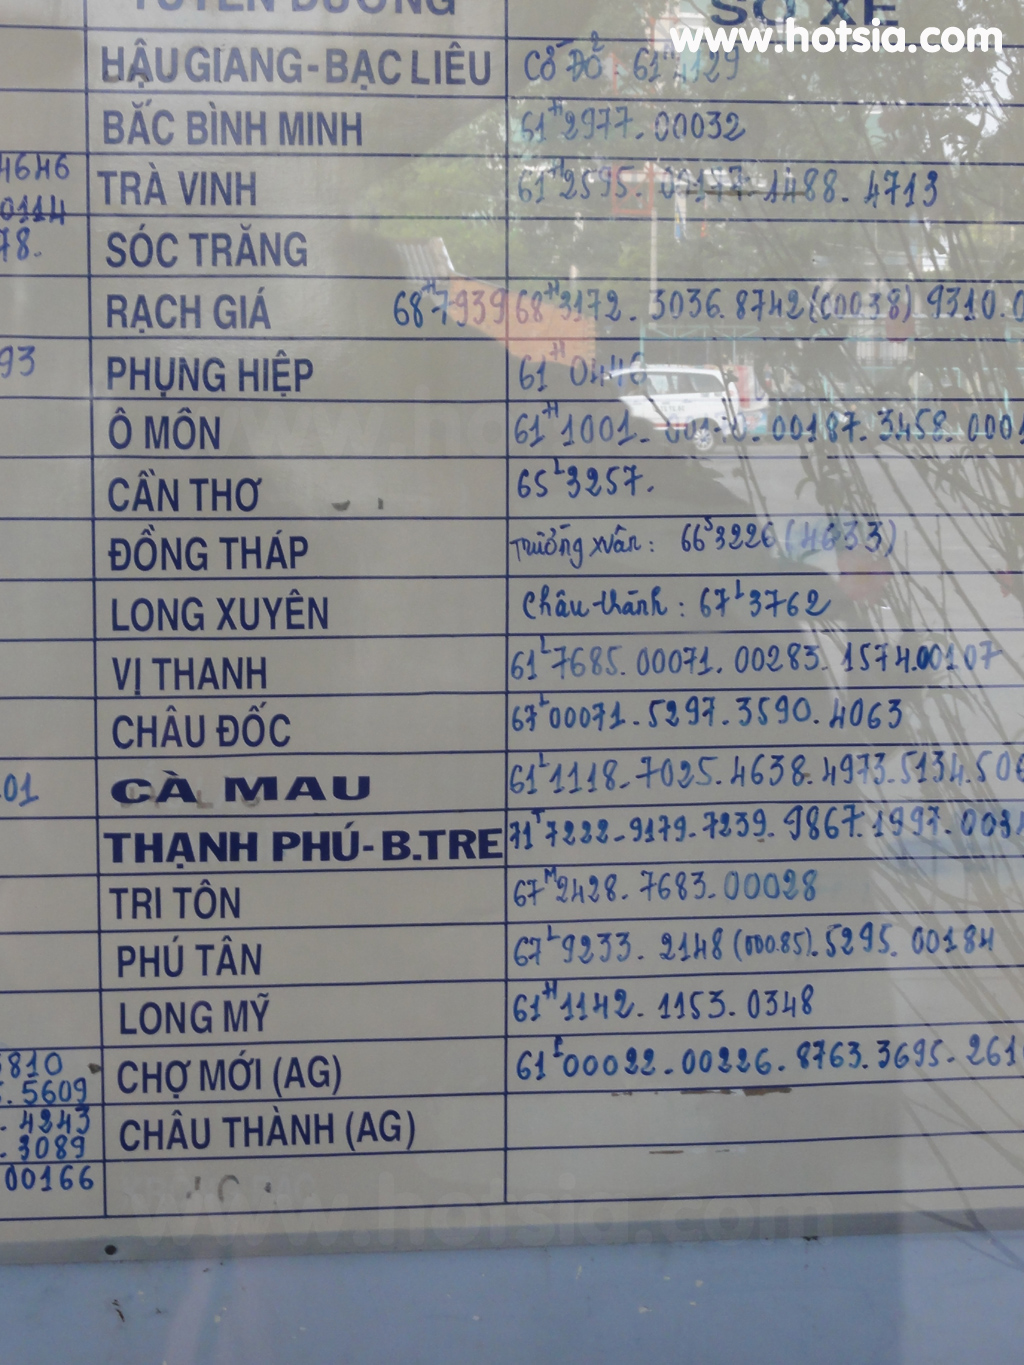 TUYẾN ĐƯỜNG SỐ XE
www.hotsia.com
HẬU GIANG-BẠC LIÊU Cờ Đỏ 2: 61H 4129
BẮC BÌNH MINH 61H 2977. 00032
4646
0114
TRÀ VINH 61H 2595. 00177. 1488. 4713
78. SÓC TRĂNG
RẠCH GIÁ 68H 7939 68H 3172. 3036. 8742 (00038) 9310.
93 PHỤNG HIỆP 61H 0446
Ô MÔN 61H 1001. 00187. 3458. 0001
CẦN THƠ 65L 3257.
ĐỒNG THÁP Trường xuân: 66S 3226 (4633)
LONG XUYÊN Châu-thành: 67L 3762
VỊ THANH 61L 7685. 00071. 00283. 1574. 00107
CHÂU ĐỐC 67L 00071. 5297. 3590. 4063
01 CÀ MAU 61L 1118. 7025. 4638. 4973. 5134. 506
THẠNH PHÚ-B.TRE 71T 7222-9179. 7239. 9867. 1997. 003
TRI TÔN 67M 2428. 7683. 00028
PHÚ TÂN 67L 9233. 2148 (00085). 5295. 00184
LONG MỸ 61H 1142. 1153. 0348
5810
. 5609
CHỢ MỚI (AG) 61L 00022. 00226. 8763. 3695. 261
. 4243
. 3089
CHÂU THÀNH (AG)
00166
www.hotsia.com